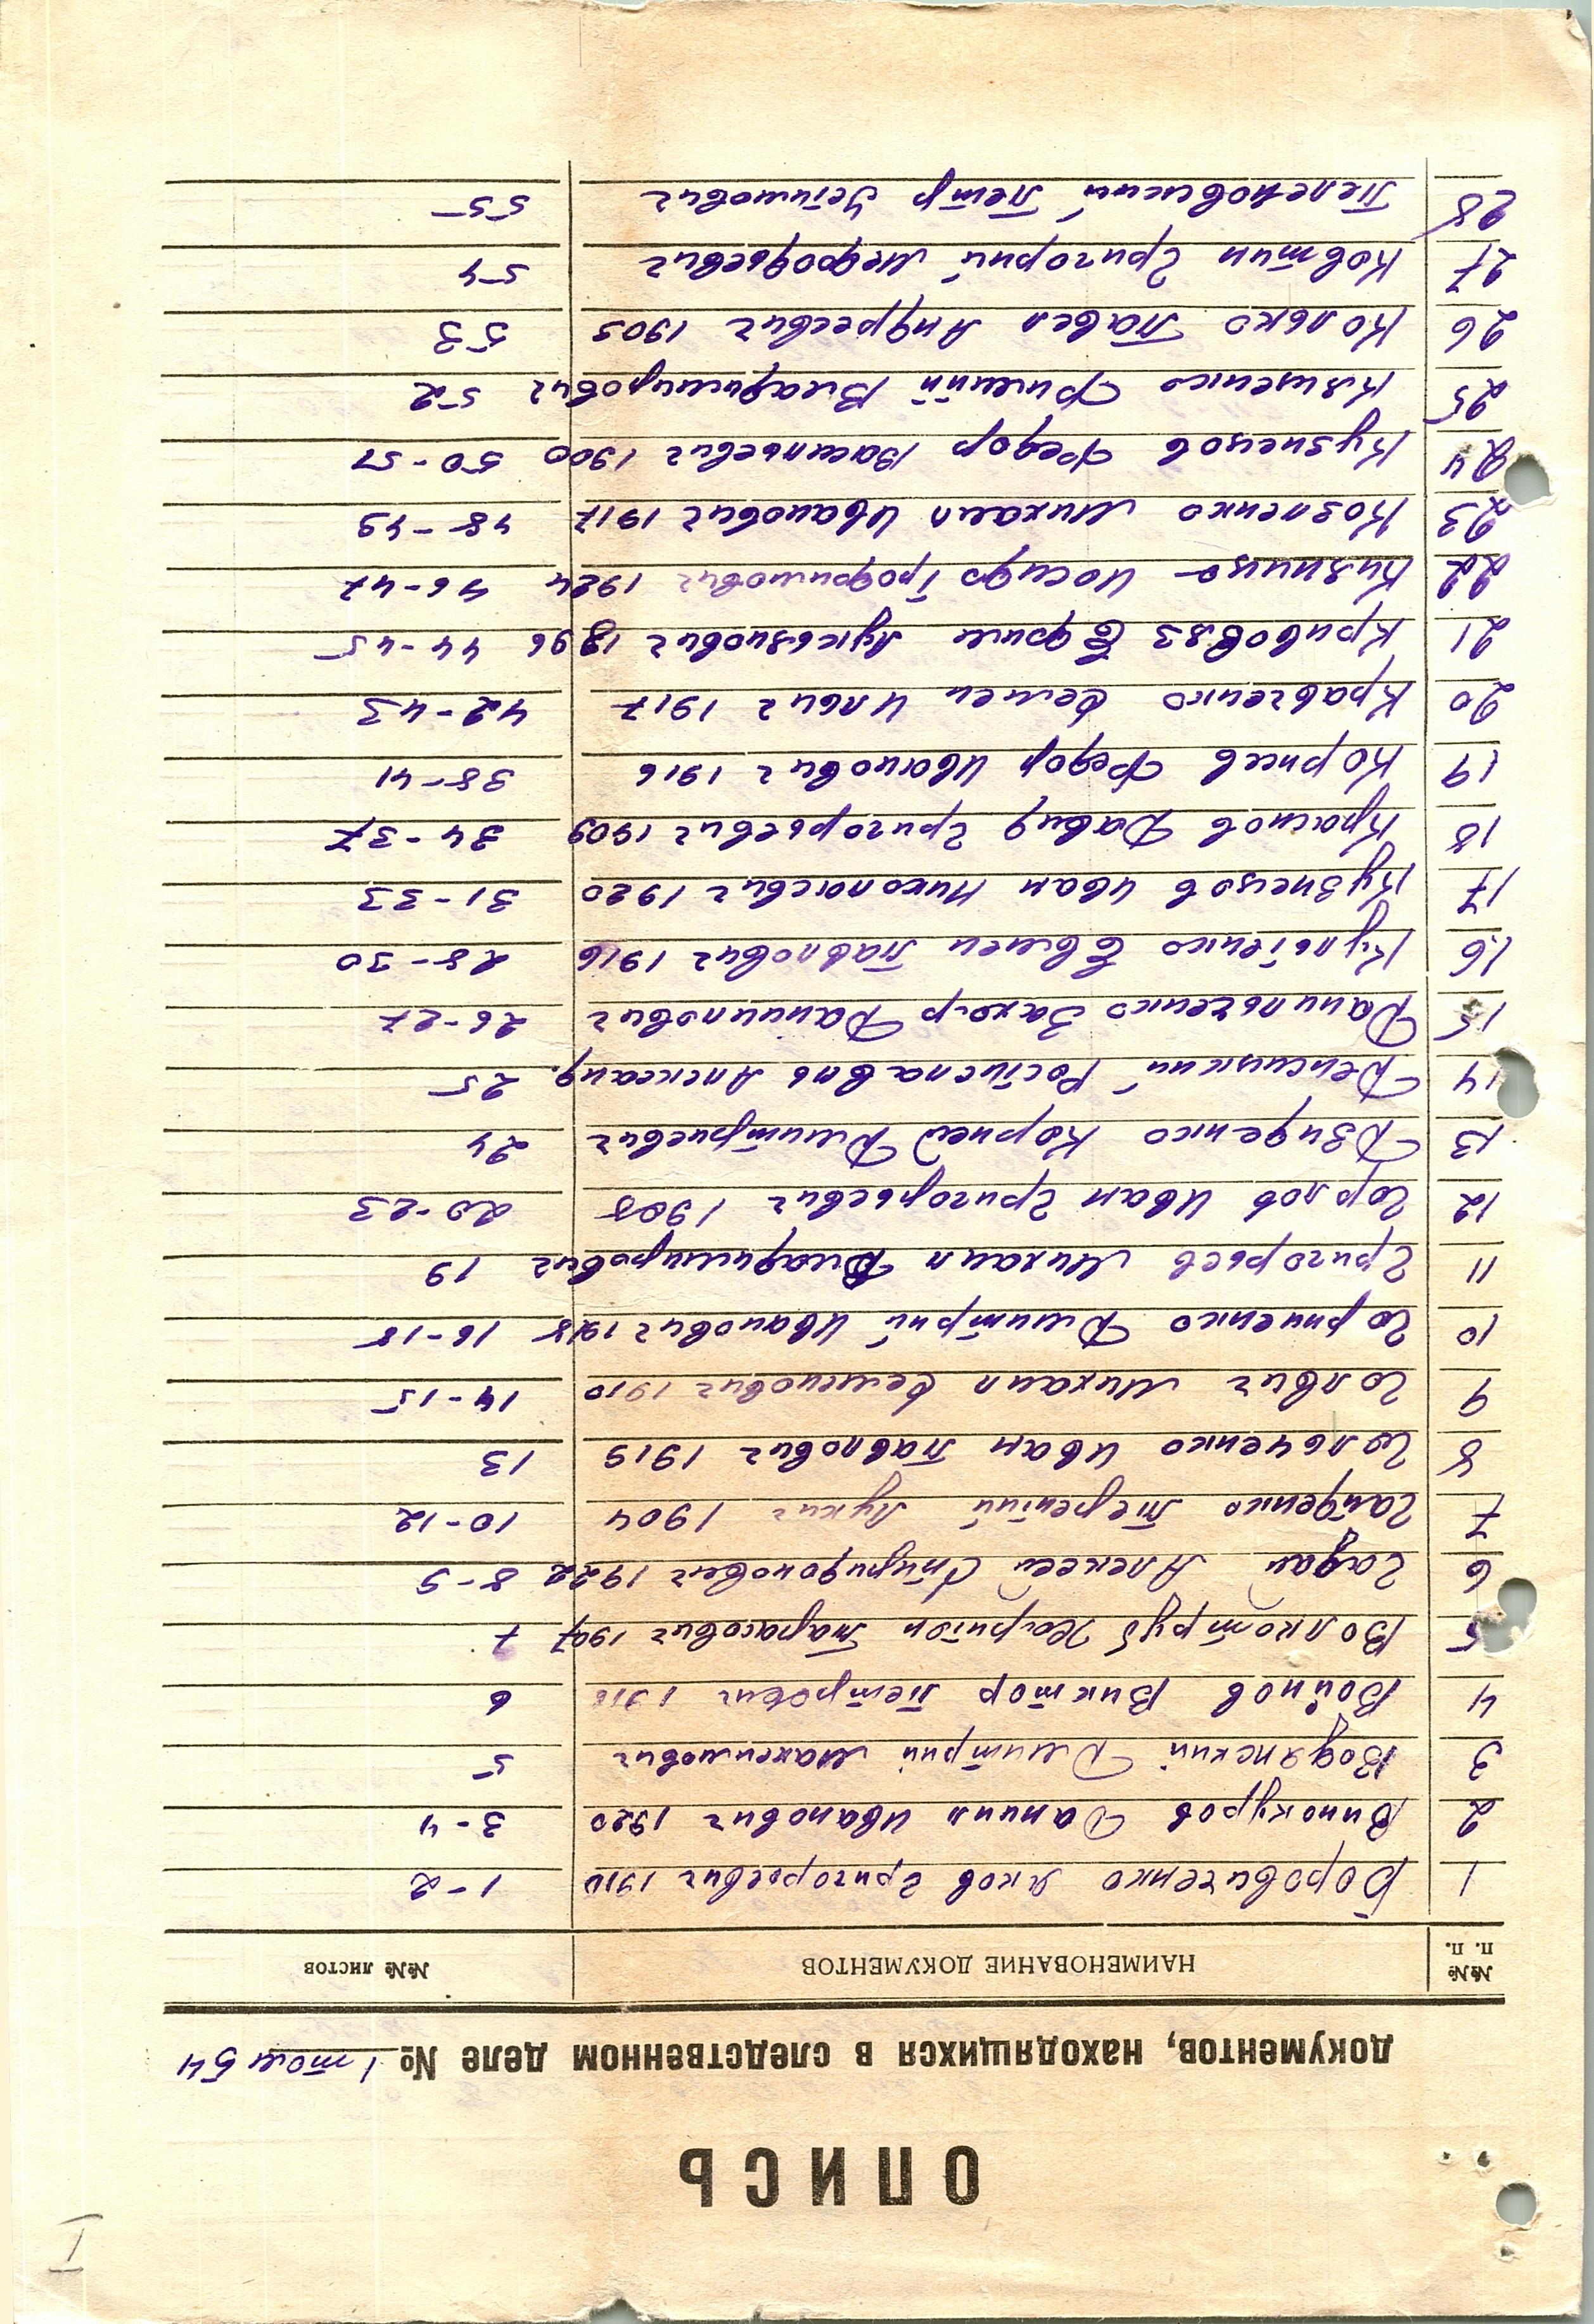 I
ОПИСЬ
документов, находящихся в следственном деле № 1 том 54
№№ п. п. НАИМЕНОВАНИЕ ДОКУМЕНТОВ №№ листов
1 Боровиченко Яков Григорьевич 1910 1-2
2 Винокуров Данил Иванович 1920 3-4
3 Водянский Дмитрий Максимович 5
4 Войнов Виктор Петрович 6
5 Волкотруб Харитон Тарасович 1907 7
6 Гадай Алексей Спиридонович 1922 8-9
7 Гайденко Терентий Лукич 1904 10-12
8 Гольченко Иван Павлович 1919 13
9 Голвич Михаил Семенович 1910 14-15
10 Горниенко Дмитрий Иванович 1918 16-18
11 Григорьев Михаил Владимирович 19
12 Горлов Иван Григорьевич 1908 20-23
13 Дзиденко Корней Дмитриевич 24
14 Денский Ростислав Александ. 25
15 Данильченко Захар Даниилович 26-27
16 Кульченко Евмен Павлович 1916 28-30
17 Кузнецов Иван Николаевич 1920 31-33
18 Краснов Давид Григорьевич 1909 34-37
19 Корнев Федор Иванович 1916 38-41
20 Кравченко Семен Ильич 1917 42-43
21 Кривовяз Ефим Лукьянович 1896 44-45
22 Иосиф Трофимович 1924 46-47
23 Козленко Михаил Иванович 1917 48-49
24 Кузнецов Федор Васильевич 1900 50-51
25 Владимирович 52
26 Колько Павел Андреевич 1909 53
27 Ковтун Григорий Мефодьевич 54
28 Пелеховский Петр Устимович 55